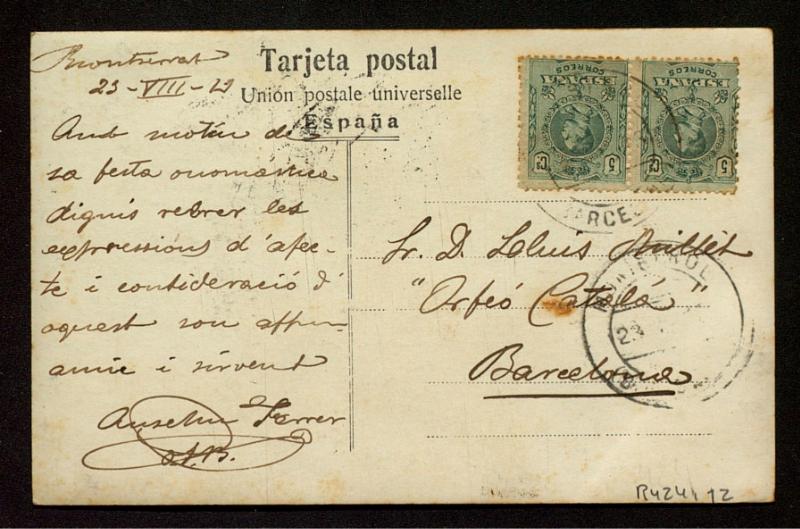 Montserrat
23-VIII-19
Tarjeta postal
Unión postale universelle
España
Amb motiu de
sa festa onomastica
dignis rebrer les
expressions d'afec-
te i consideració d'
aquest son affm
amic i servent
Anselm Ferrer
CORREOS
ESPAÑA
5 Cs
CORREOS
ESPAÑA
5 Cs
BARCE
Sr. D. Lluis Millét
"Orfeó Catalá"
Barcelona
MONISTROL
23
R424112